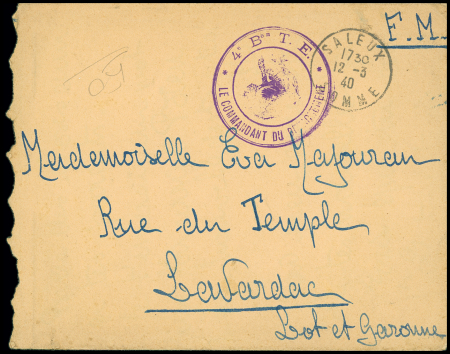 F.M.
4e Bon T. E.
LE COMMANDANT DU
SALEUX
1730
12 - 3
40
SOMME
Mademoiselle Eva Majouran
Rue du Temple
Lavardac
Lot et Garonne